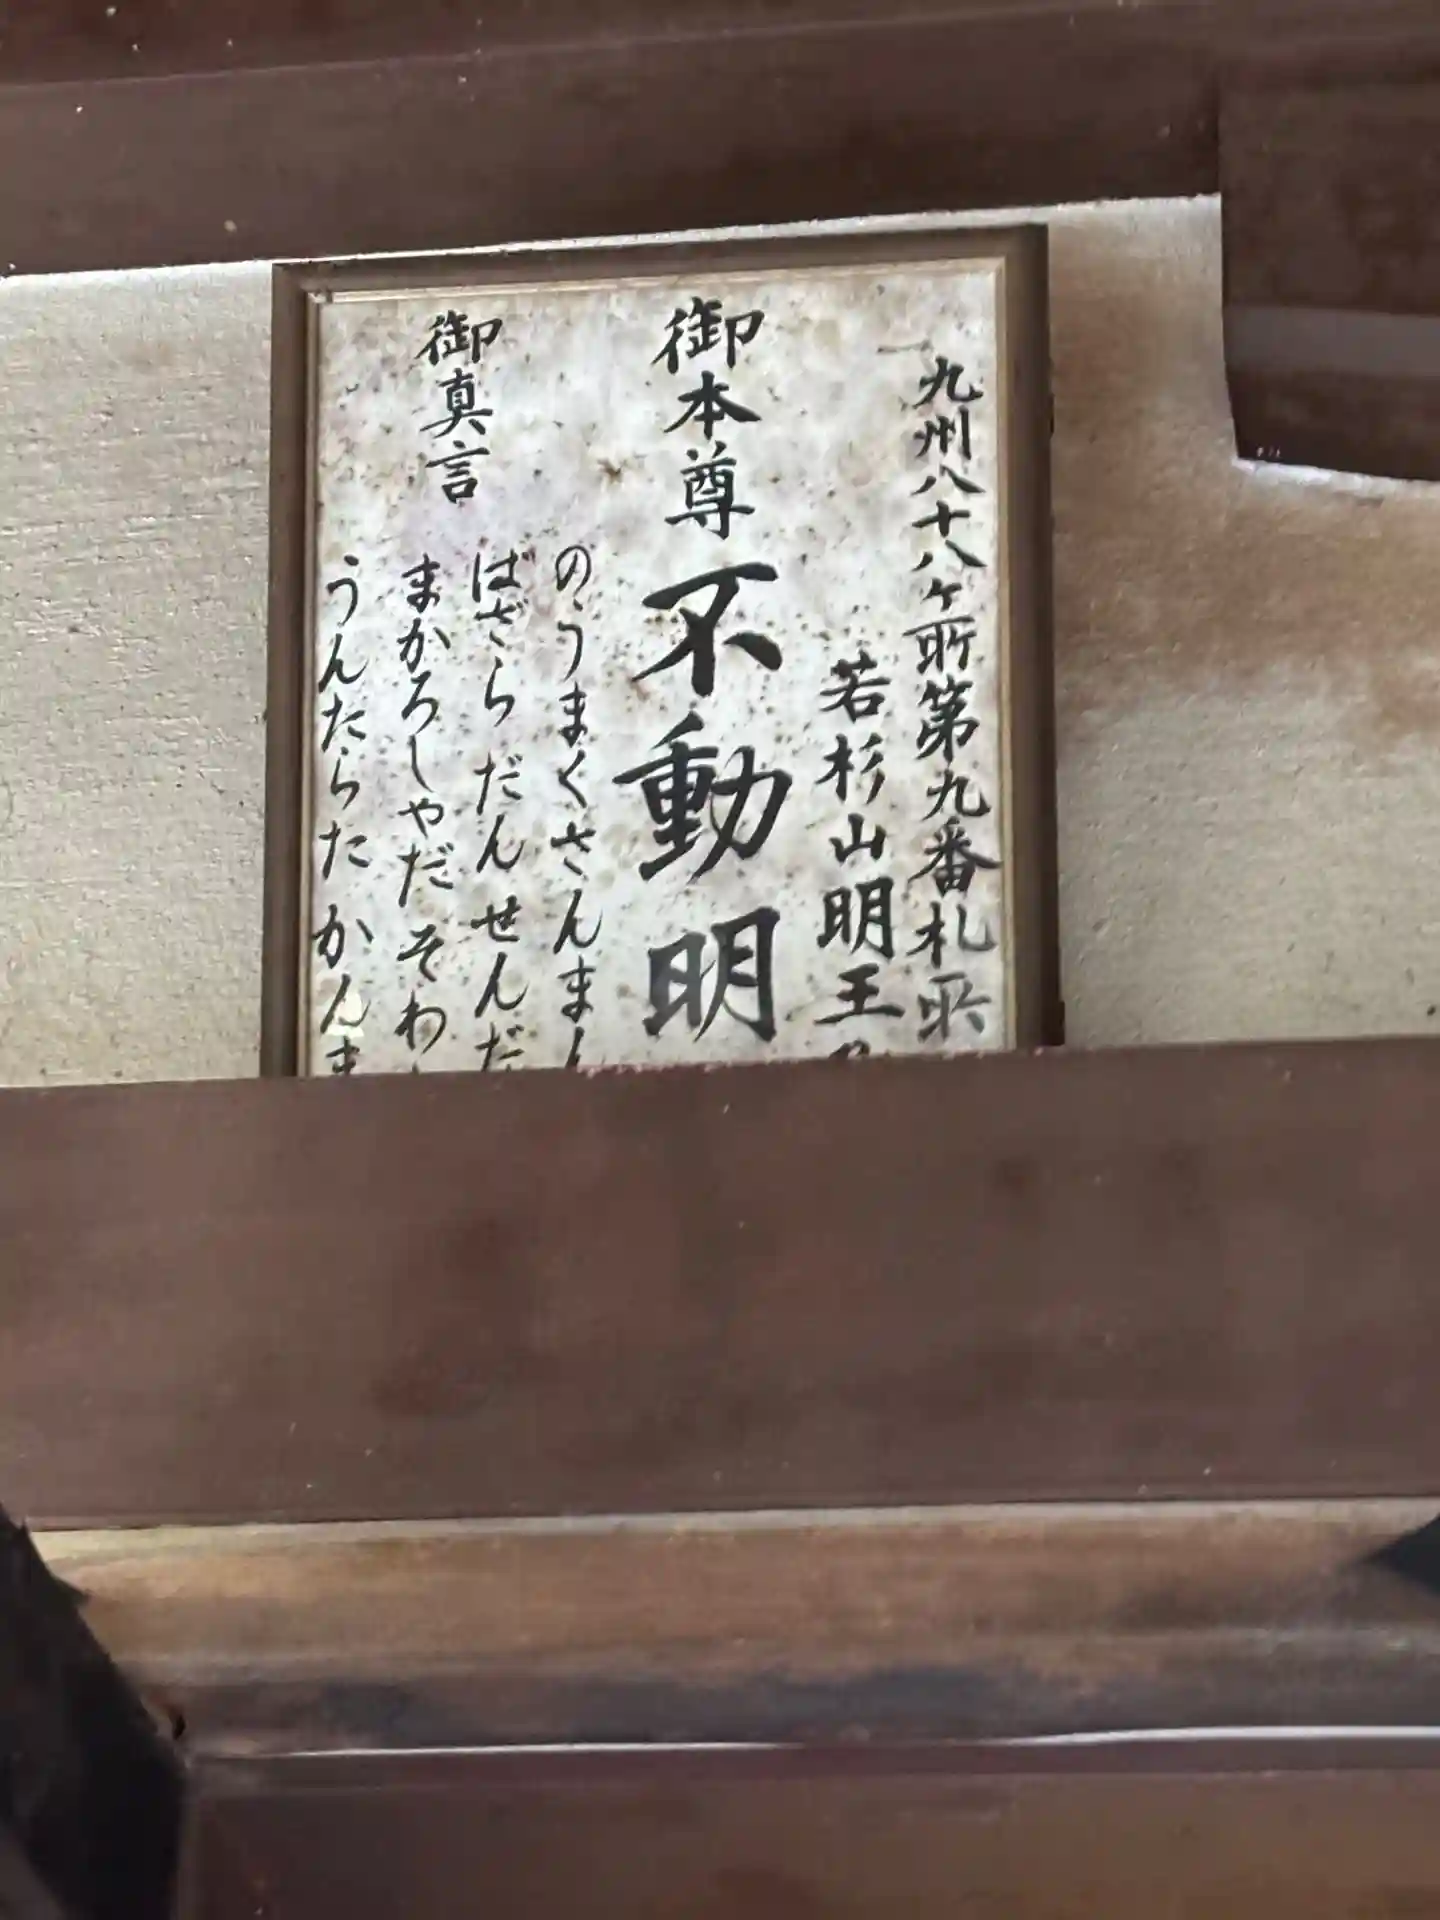 九州八十八ヶ所第九番札所
若杉山明王
御本尊 不動明
御真言
のうまくさんまん
ばざらだんせんだ
まかろしゃだそわ
うんたらたかんま